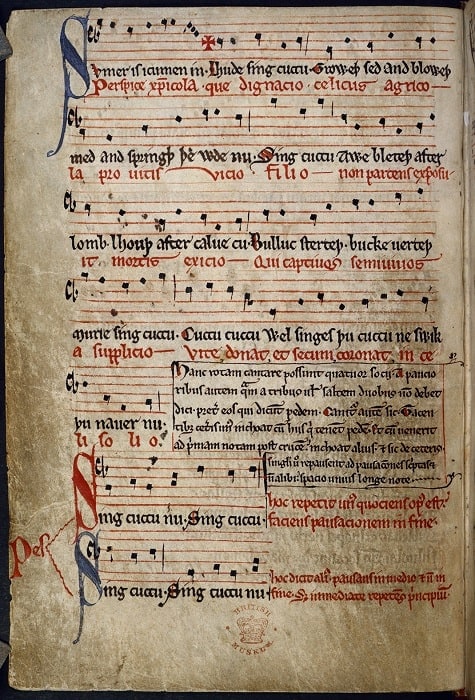 Svmer is icumen in. Lhude sing cuccu. Groweþ sed and bloweþ
Perspice xp̄icola. que dignacio. celicus agrico
med and springþ þe wde nu. Sing cuccu Awe bleteþ after
la pro uitis vicio filio non parcens exposu
lomb. lhouþ after calue cu. Bulluc sterteþ. bucke uerteþ
it. mortis exicio Qui captiuos semiuiuos
murie sing cuccu. Cuccu cuccu Wel singes þu cuccu ne swik
a supplicio Vite donat. et secum coronat in ce
þu nauer nu.
li solio
Hanc rotam cantare possunt quatuor socii. A paucio
ribus autem qͣm a tribus ul̄ saltem duobus nō debet
dici. pret̄ eos qui dicūt pedem. Canit᷑ autē sic. Tacen
tibꝫ cet̄is unꝰ inchoat cū hiis qͥ tenent pedē. et cū uenerit
ad pͥmam notam post crucē. inchoat alius. et sic de ceteris.
singli u͛o repausent ad pausacōnes scͥptas et
nō alibi. spacio unius longe note.
Sing cuccu nu. Sing cuccu.
hoc repetit unꝰ quociens opꝰ est.
faciens pausacionem in fine.
Pes
Sing cuccu. Sing cuccu nu
hoc dicit aliꝰ. pausans in medio et nō in
fine. Sꝫ immediate repetēs pͥncipiū.
BRITISH
MUSEUM